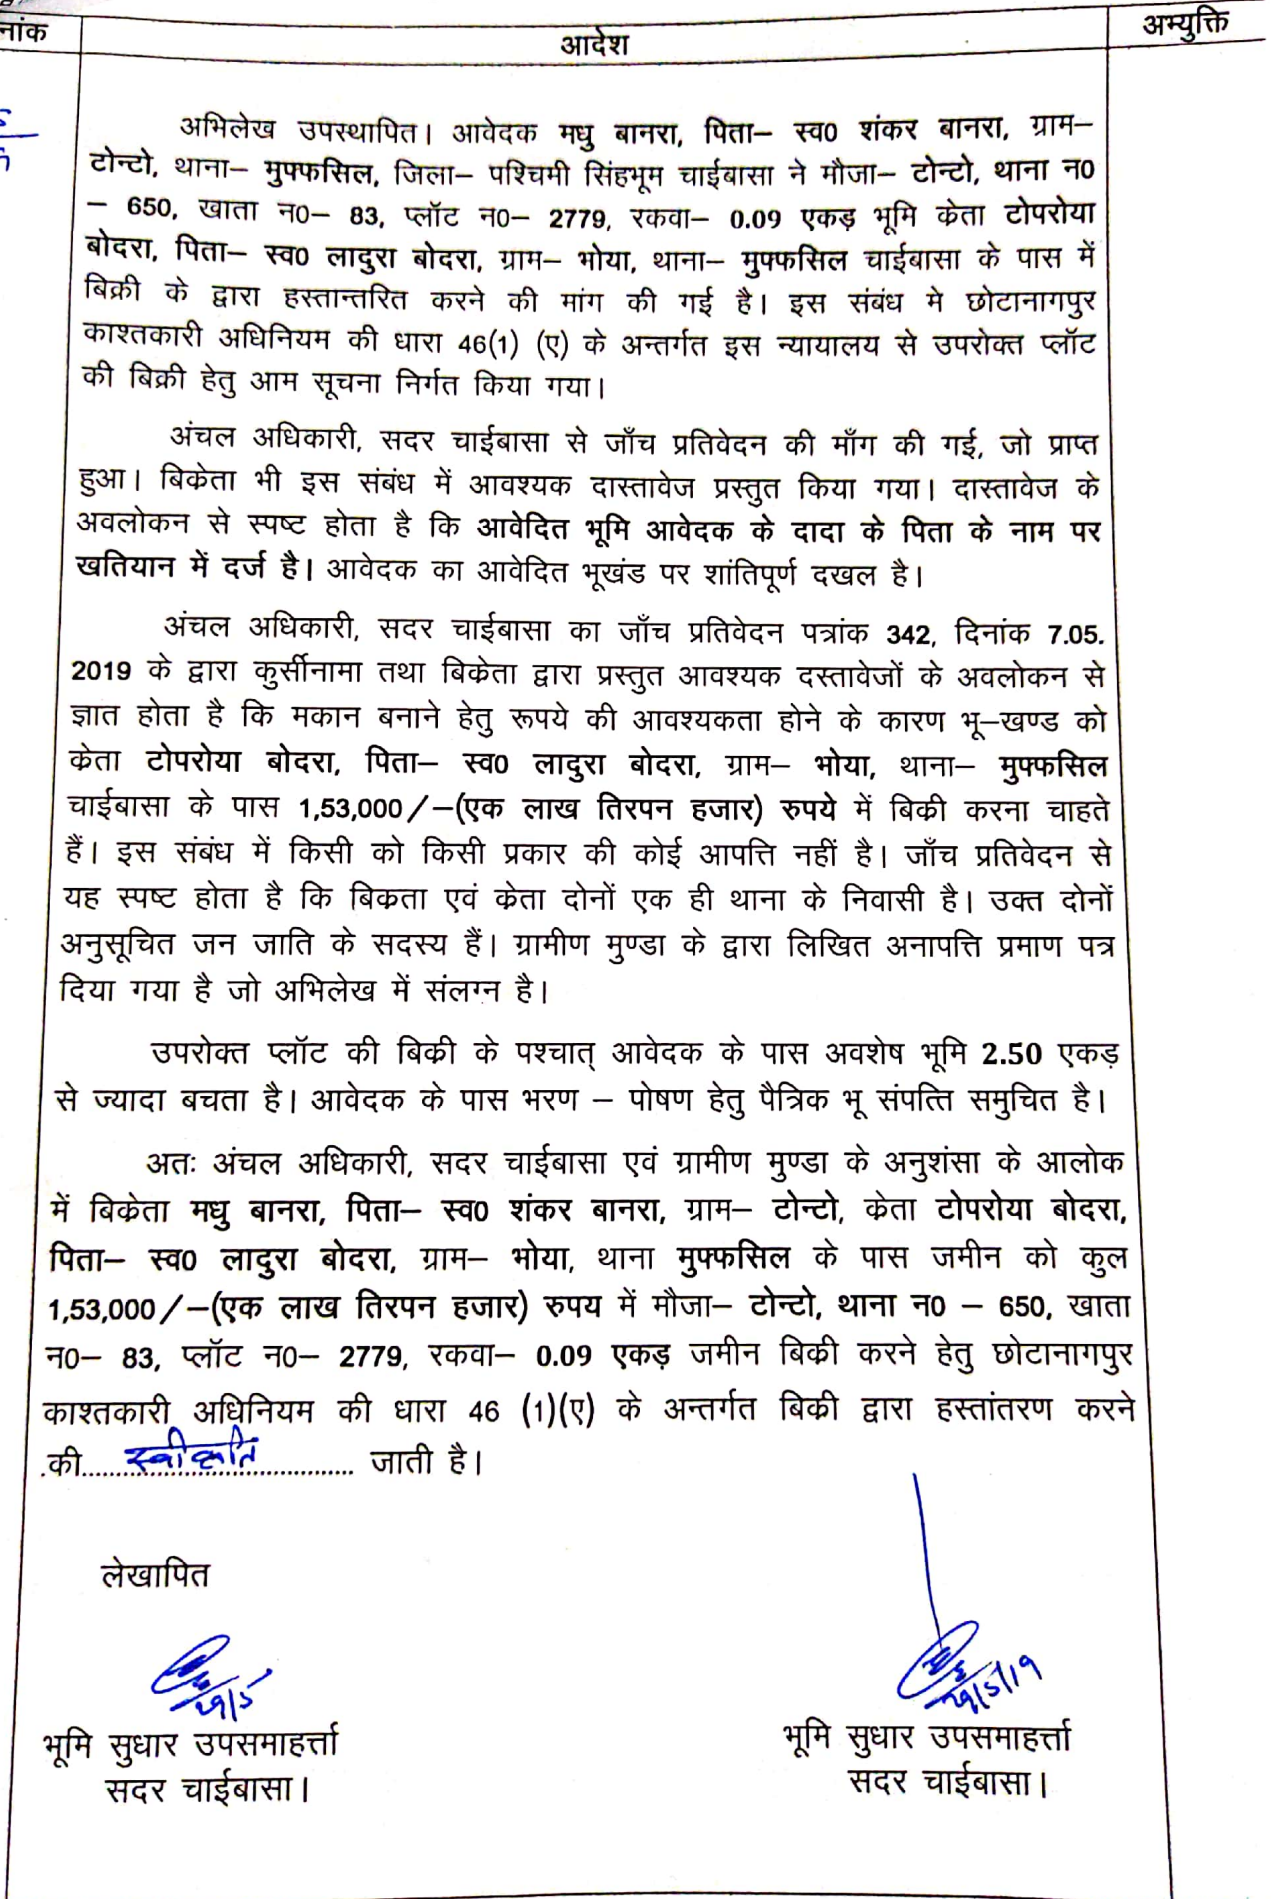 नांक
आदेश
अभ्युक्ति
अभिलेख उपस्थापित। आवेदक मधु बानरा, पिता– स्व0 शंकर बानरा, ग्राम–
टोन्टो, थाना– मुफ्फसिल, जिला– पश्चिमी सिंहभूम चाईबासा ने मौजा– टोन्टो, थाना न0
– 650, खाता न0– 83, प्लॉट न0– 2779, रकवा– 0.09 एकड़ भूमि केता टोपरोया
बोदरा, पिता– स्व0 लादुरा बोदरा, ग्राम– भोया, थाना– मुफ्फसिल चाईबासा के पास में
बिक्री के द्वारा हस्तान्तरित करने की मांग की गई है। इस संबंध मे छोटानागपुर
काश्तकारी अधिनियम की धारा 46(1) (ए) के अन्तर्गत इस न्यायालय से उपरोक्त प्लॉट
की बिक्री हेतु आम सूचना निर्गत किया गया।
अंचल अधिकारी, सदर चाईबासा से जाँच प्रतिवेदन की माँग की गई, जो प्राप्त
हुआ। बिकेता भी इस संबंध में आवश्यक दास्तावेज प्रस्तुत किया गया। दास्तावेज के
अवलोकन से स्पष्ट होता है कि आवेदित भूमि आवेदक के दादा के पिता के नाम पर
खतियान में दर्ज है। आवेदक का आवेदित भूखंड पर शांतिपूर्ण दखल है।
अंचल अधिकारी, सदर चाईबासा का जाँच प्रतिवेदन पत्रांक 342, दिनांक 7.05.
2019 के द्वारा कुर्सीनामा तथा बिकेता द्वारा प्रस्तुत आवश्यक दस्तावेजों के अवलोकन से
ज्ञात होता है कि मकान बनाने हेतु रूपये की आवश्यकता होने के कारण भू–खण्ड को
केता टोपरोया बोदरा, पिता– स्व0 लादुरा बोदरा, ग्राम– भोया, थाना– मुफ्फसिल
चाईबासा के पास 1,53,000/–(एक लाख तिरपन हजार) रुपये में बिकी करना चाहते
हैं। इस संबंध में किसी को किसी प्रकार की कोई आपत्ति नहीं है। जाँच प्रतिवेदन से
यह स्पष्ट होता है कि बिकता एवं केता दोनों एक ही थाना के निवासी है। उक्त दोनों
अनुसूचित जन जाति के सदस्य हैं। ग्रामीण मुण्डा के द्वारा लिखित अनापत्ति प्रमाण पत्र
दिया गया है जो अभिलेख में संलग्न है।
उपरोक्त प्लॉट की बिकी के पश्चात् आवेदक के पास अवशेष भूमि 2.50 एकड़
से ज्यादा बचता है। आवेदक के पास भरण – पोषण हेतु पैत्रिक भू संपत्ति समुचित है।
अतः अंचल अधिकारी, सदर चाईबासा एवं ग्रामीण मुण्डा के अनुशंसा के आलोक
में बिकेता मधु बानरा, पिता– स्व0 शंकर बानरा, ग्राम– टोन्टो, केता टोपरोया बोदरा,
पिता– स्व0 लादुरा बोदरा, ग्राम– भोया, थाना मुफ्फसिल के पास जमीन को कुल
1,53,000/–(एक लाख तिरपन हजार) रुपय में मौजा– टोन्टो, थाना न0 – 650, खाता
न0– 83, प्लॉट न0– 2779, रकवा– 0.09 एकड़ जमीन बिकी करने हेतु छोटानागपुर
काश्तकारी अधिनियम की धारा 46 (1)(ए) के अन्तर्गत बिकी द्वारा हस्तांतरण करने
.की......स्वीकृति...... जाती है।
लेखापित
29/5
29/5/19
भूमि सुधार उपसमाहर्त्ता
सदर चाईबासा।
भूमि सुधार उपसमाहर्त्ता
सदर चाईबासा।